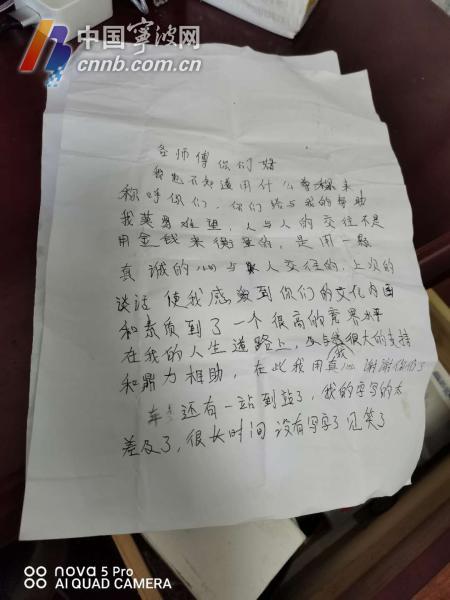 中国宁波网
cnnb.com.cn
各师傅你们好
我也不知道用什么尊称来
称呼你们，你们给与我的帮助
我莫男难望，人与人的交往不是
用金钱来衡量的，是用一颗
真诚的心与人交往的，上次的
谈话使我感受到你们的文化内函
和素质到了一个很高的竟界水平
在我的人生道路上，给与我很大的支持
和鼎力相助，在此我用真心谢谢你们了
车还有一站到站了，我的字写的太
差及了，很长时间没有写字了见笑了
nova 5 Pro
AI QUAD CAMERA